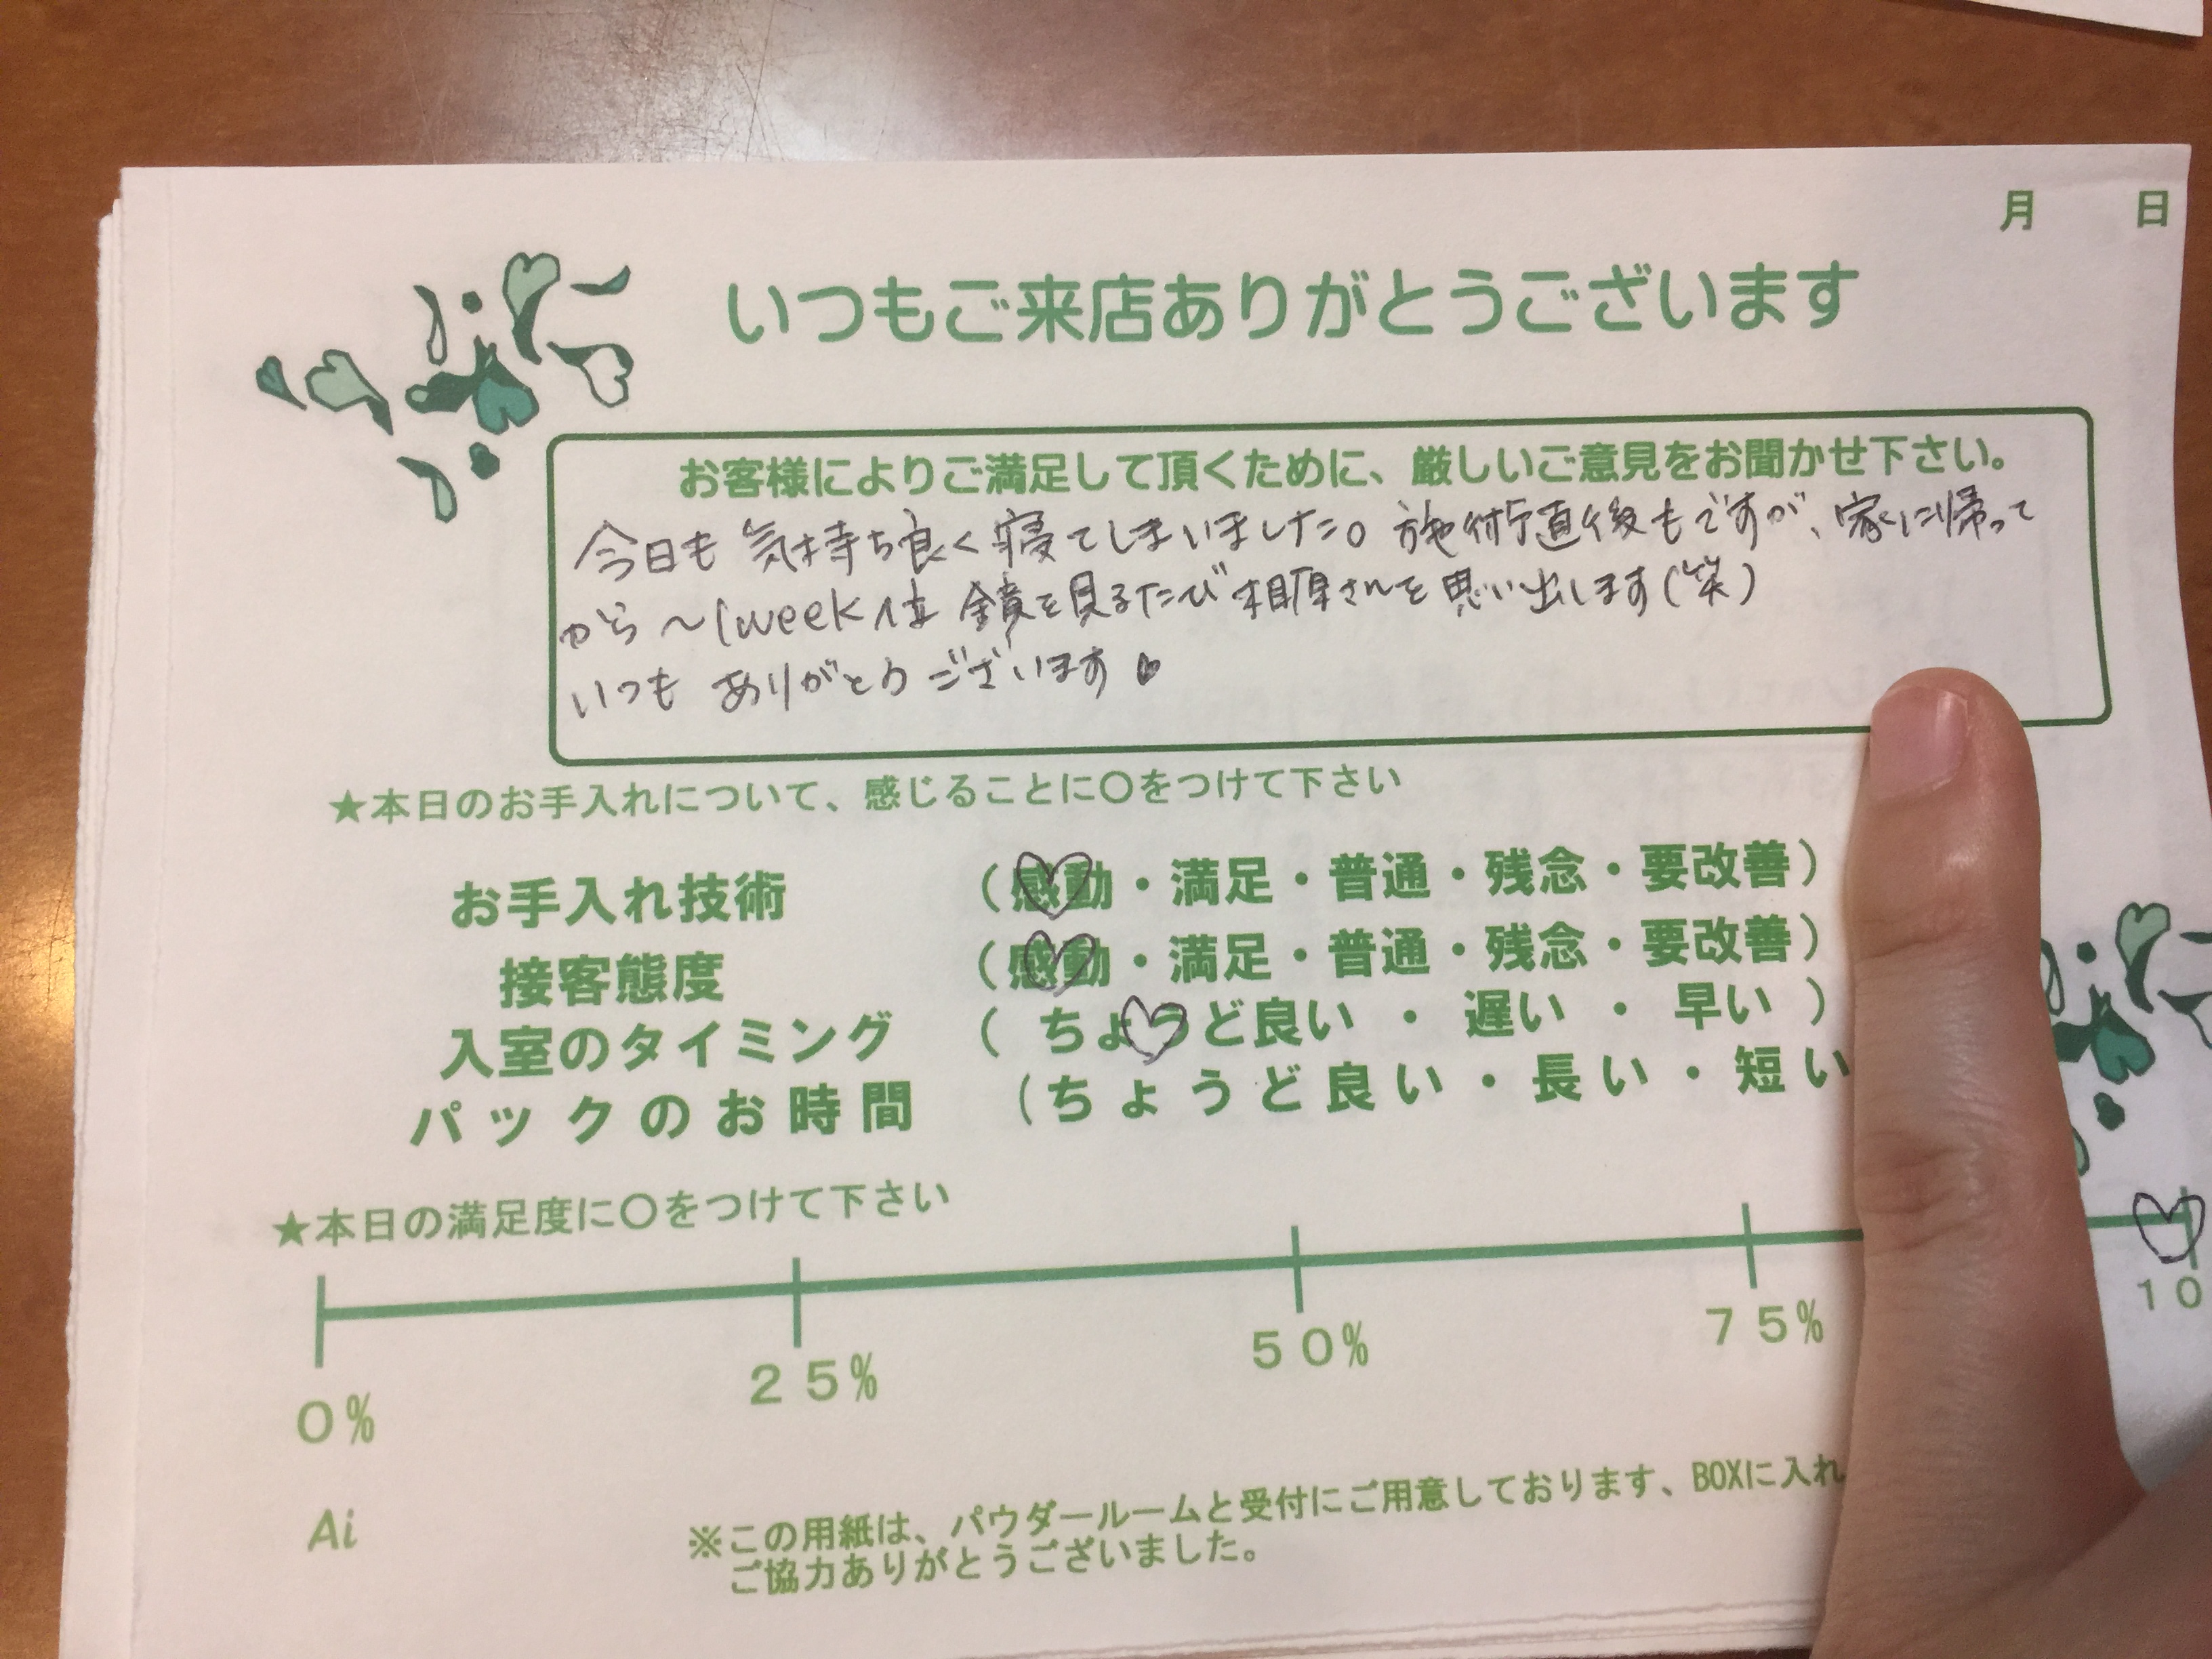 月 日
いつもご来店ありがとうございます
お客様によりご満足して頂くために、厳しいご意見をお聞かせ下さい。
今日も気持ち良く寝てしまいました。施術直後もですが、家に帰って
から〜1weekは鏡を見るたび相原さんを思い出します(笑)
いつもありがとうございます♥
★本日のお手入れについて、感じることに〇をつけて下さい
お手入れ技術 (感動・満足・普通・残念・要改善)
接客態度 (感動・満足・普通・残念・要改善)
入室のタイミング (ちょうど良い・遅い・早い)
パックのお時間 (ちょうど良い・長い・短い
★本日の満足度に〇をつけて下さい
0% 25% 50% 75% 10
Ai
※この用紙は、パウダールームと受付にご用意しております、BOXに入れ
ご協力ありがとうございました。